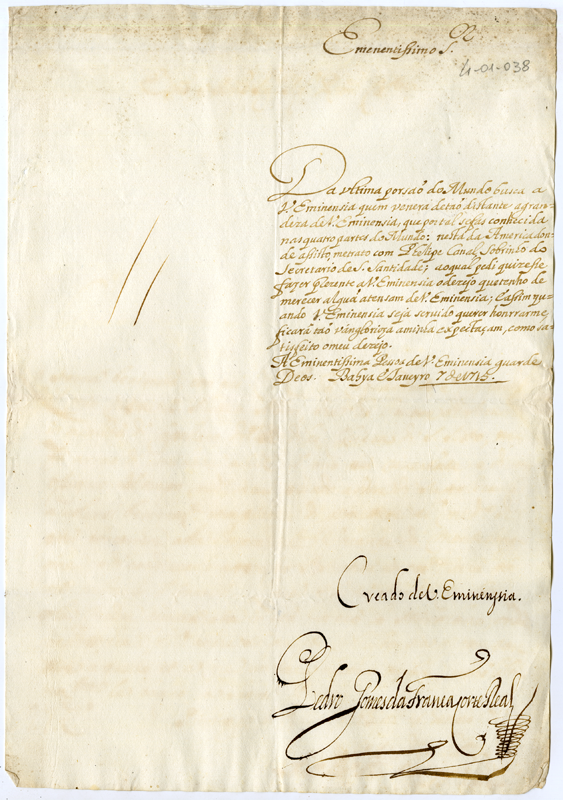 Emenentissimo S.ᴼʳ
4-01-038
Da ultima porsaõ do Mundo busca a
V. Eminensia quem venera detaõ distante agran-
deza de V. Eminensia, que por tal se faz conhecida
nas quatro partes do Mundo: nesta da America don-
de asisto, metrato com Phelipe Canal Sobrinho do
Secretario de S. Santidade; aoqual pedi quizesse
fazer prezente a V. Eminensia odezejo que tenho de
merecer algũa atensam de V. Eminensia; Eassim qu-
ando V. Eminensia seja servido querer honrrarme,
ficará taõ a minha expectaçam, como sa-
tisfeito o meu dezejo.
A Eminentissima Pesoa de V. Eminensia guarde
Deos. Bahya e Janeyro 7 de 1715.
Creado de V. Eminensia.
Pedro Gomes da Franca Corte Real